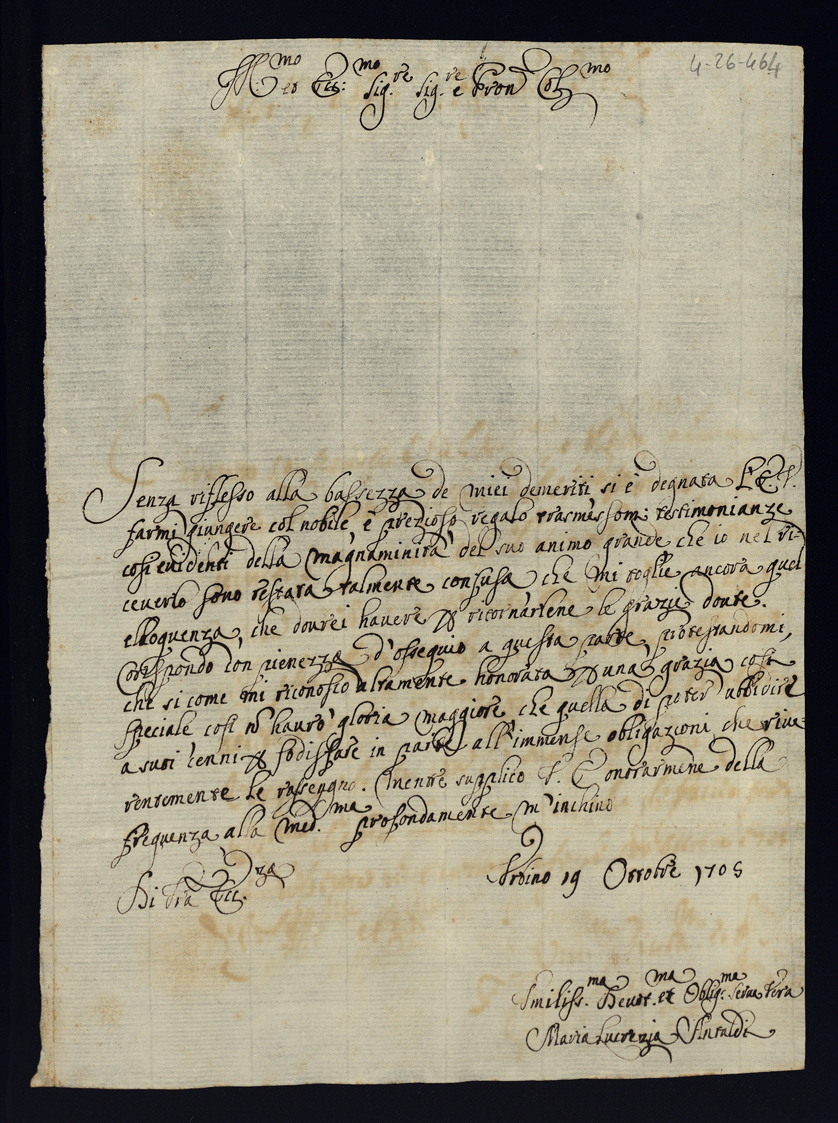 4-26-464
Ill.mo et Ecc.mo Sig.re Sig.re e Pron Col.mo
Senza riflesso alla bassezza de miei demeriti, si è degnata L'E.V.
farmi giungere col nobile, e prezioso regalo trasmessom: testimonianze
così evidenti della magnaminità del suo animo grande che io nel ri-
ceverlo sono restata talmente confusa che mi toglie ancora quel
elloquenza, che dovrei havere p ritornarlene le grazie doute.
Corispondo con pienezza d'ossequio a questa parte, protestandomi,
che si come mi riconosco altamente honorata p una grazia così
speciale così n haurò gloria maggiore che quella di poter ubbidire
a suoi cenni p sodisfare in parte all'immense obligazioni che rive-
rentemente le rassegno. Mentre supplico V. E onorarmene della
frequenza alla med.ma profondamente m'inchino
Di Vra Ecc.za
Urbino 19 Ottobre 1705
Umiliss.ma Deuot.ma et Oblig.ma Serua Vera
Maria Lucrezia Antaldi